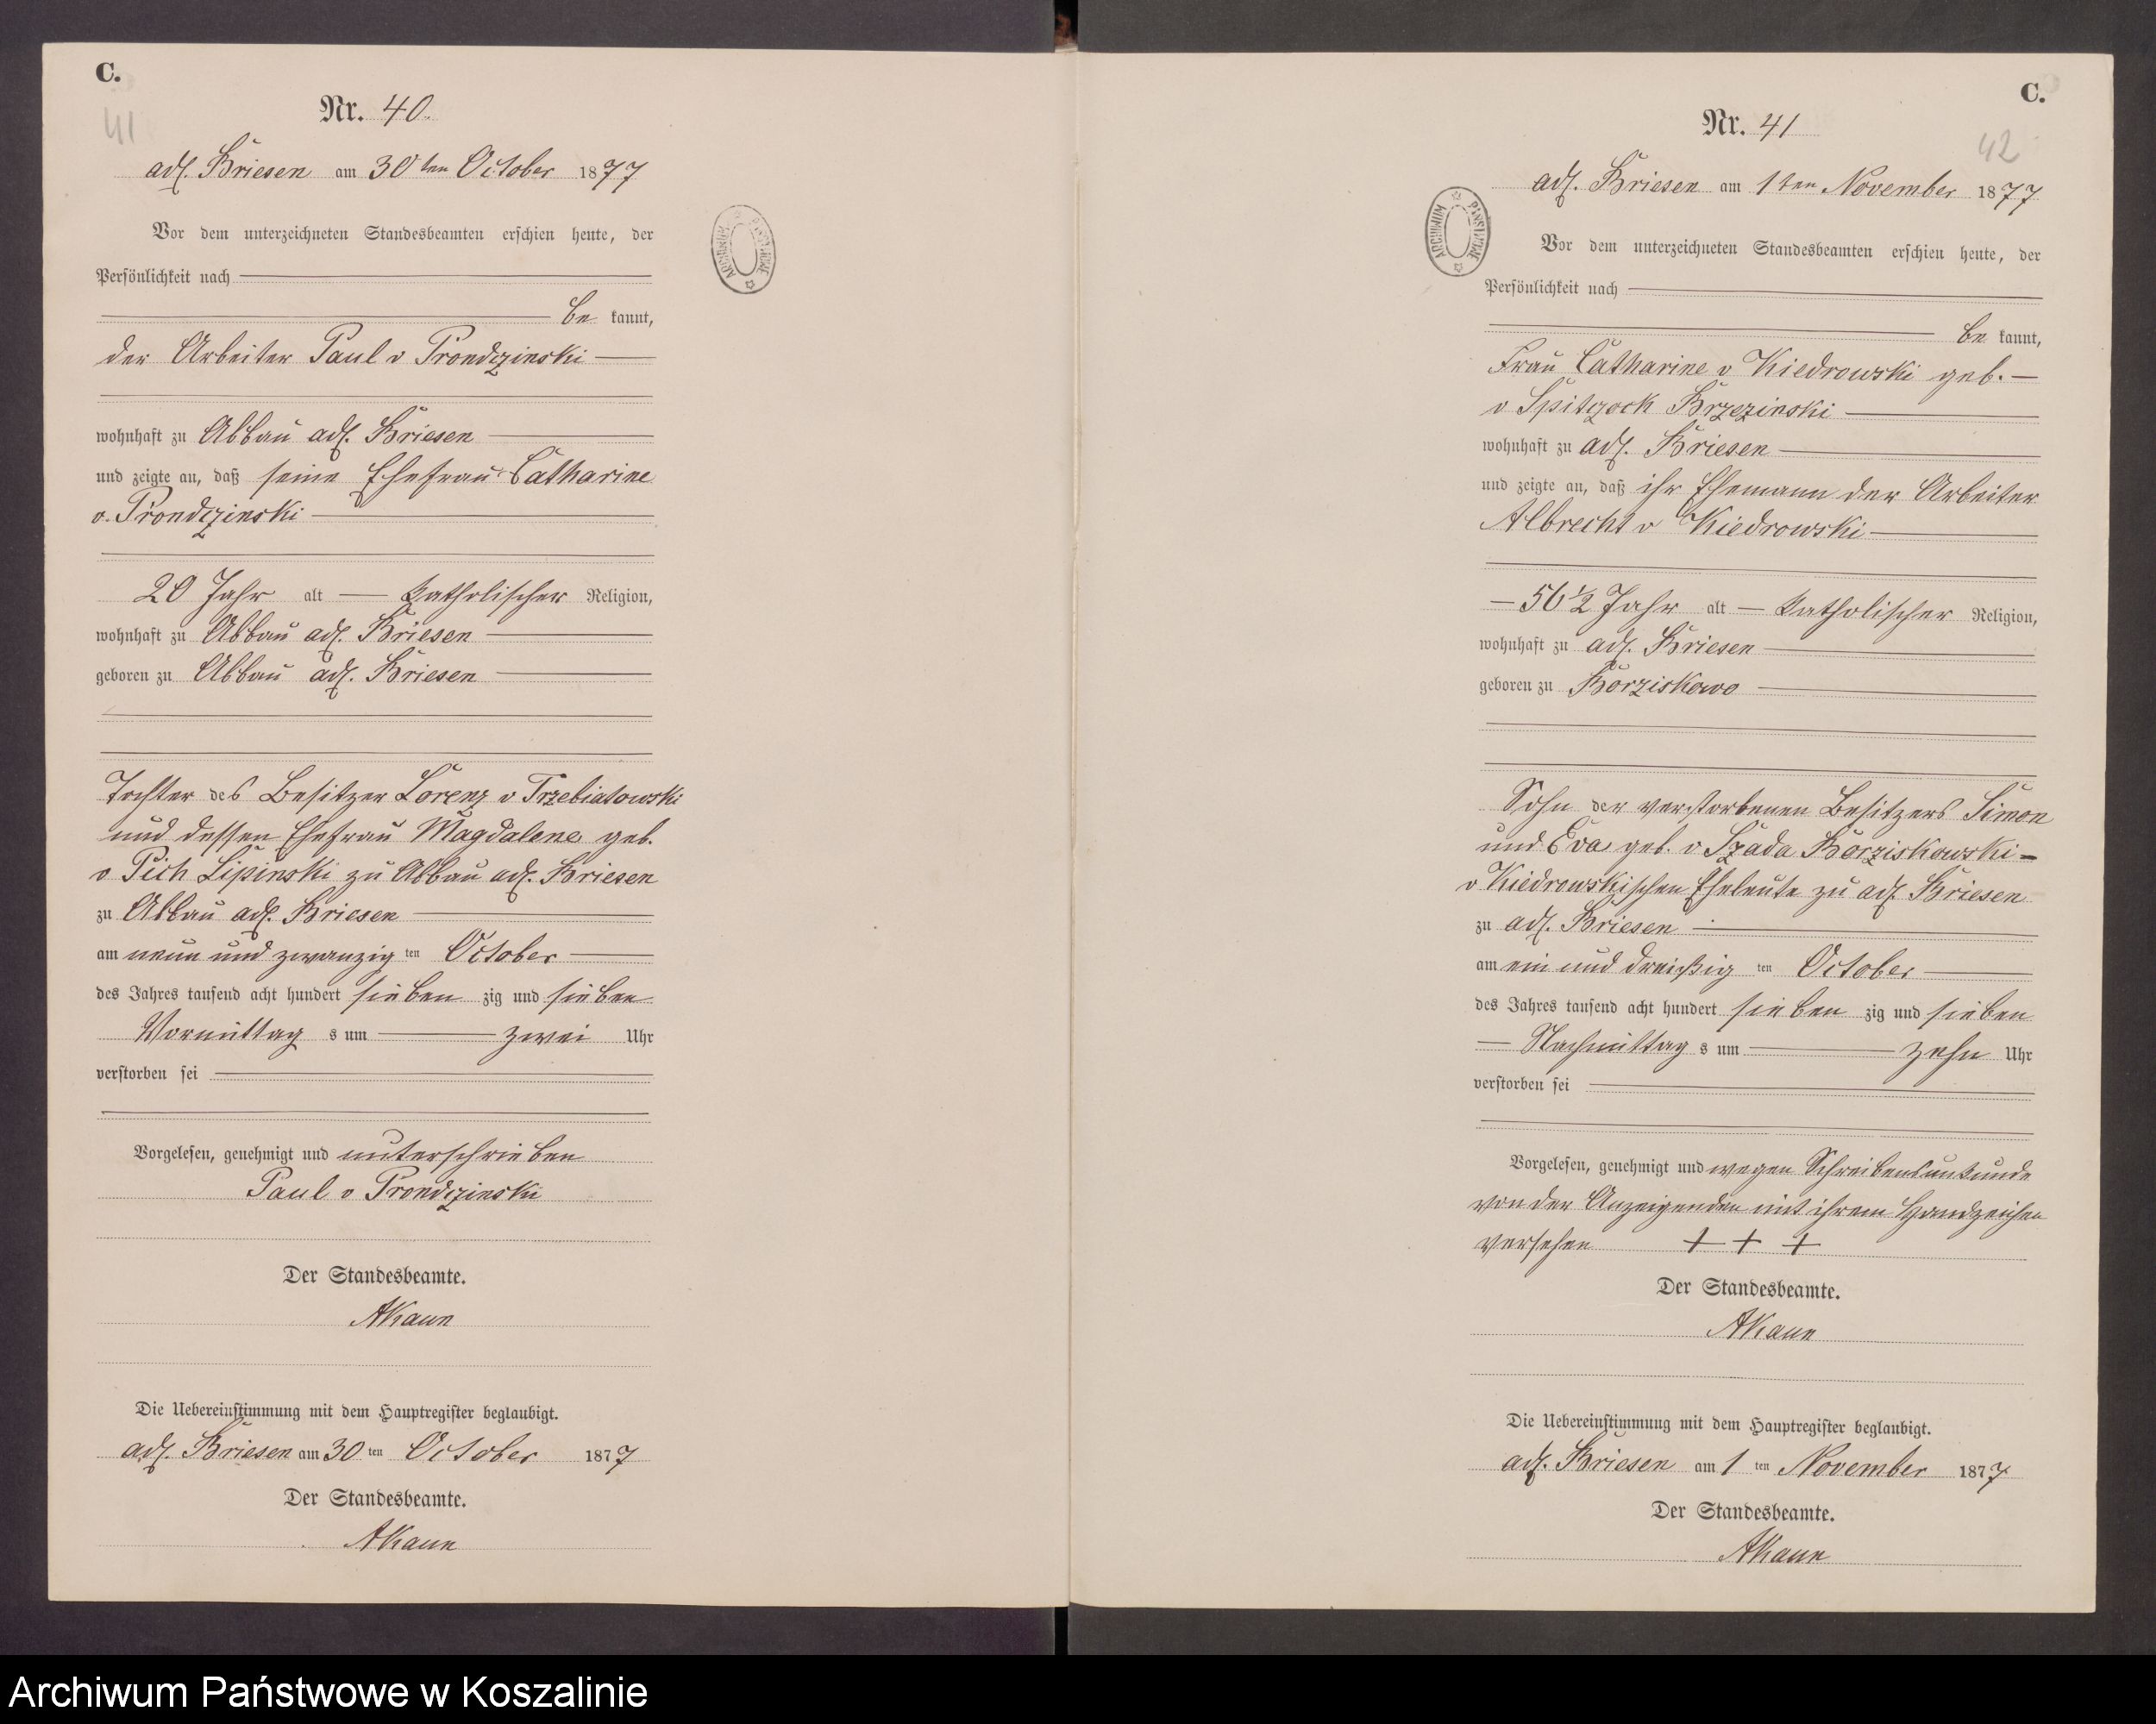 C.
41
Nr. 40.
adl. Briesen am 30ten October 1877
Vor dem unterzeichneten Standesbeamten erschien heute, der
Persönlichkeit nach
be kannt,
der Arbeiter Paul v Prondzinski
wohnhaft zu Abbau adl. Briesen
und zeigte an, daß seine Ehefrau Catharine
v. Prondzinski
20 Jahr alt katholischer Religion,
wohnhaft zu Abbau adl. Briesen
geboren zu Abbau adl. Briesen
Tochter des Besitzer Lorenz v Trzebiatowski
und dessen Ehefrau Magdalene geb.
v Pich Lipinski zu Abbau adl. Briesen
zu Abbau adl. Briesen
am neun und zwanzig ten October
des Jahres tausend acht hundert sieben zig und sieben
Vormittag s um zwei Uhr
verstorben sei
Vorgelesen, genehmigt und unterschrieben
Paul v Prondzinski
Der Standesbeamte.
AKaun
Die Uebereinstimmung mit dem Hauptregister beglaubigt.
adl. Briesen am 30 ten October 1877
Der Standesbeamte.
AKaun
ARCHIWUM PAŃSTWOWE
C.
42
Nr. 41
adl. Briesen am 1ten November 1877
Vor dem unterzeichneten Standesbeamten erschien heute, der
Persönlichkeit nach
be kannt,
Frau Catharine v Kiedrowski geb.
v Spitczock Brzezinski
wohnhaft zu adl. Briesen
und zeigte an, daß ihr Ehemann der Arbeiter
Albrecht v Kiedrowski
56 1/2 Jahr alt katholischer Religion,
wohnhaft zu adl. Briesen
geboren zu Borziskowo
Sohn der verstorbenen Besitzers Simon
und Eva geb. v Szada Borziskowski-
v Kiedrowskischen Eheleute zu adl. Briesen
zu adl. Briesen
am ein und dreißig ten October
des Jahres tausend acht hundert sieben zig und sieben
Nachmittag s um zehn Uhr
verstorben sei
Vorgelesen, genehmigt und wegen Schreibensunkunde
von der Anzeigenden mit ihrem Handzeichen
versehen + + +
Der Standesbeamte.
AKaun
Die Uebereinstimmung mit dem Hauptregister beglaubigt.
adl. Briesen am 1 ten November 1877
Der Standesbeamte.
AKaun
ARCHIWUM PAŃSTWOWE
Archiwum Państwowe w Koszalinie